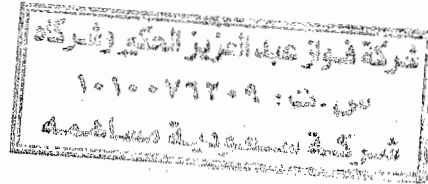 شركة فواز عبد العزيز الحكير وشركاه
س.ت: ١٠١٠٠٧٦٢٠٩
شركة سعودية مساهمه